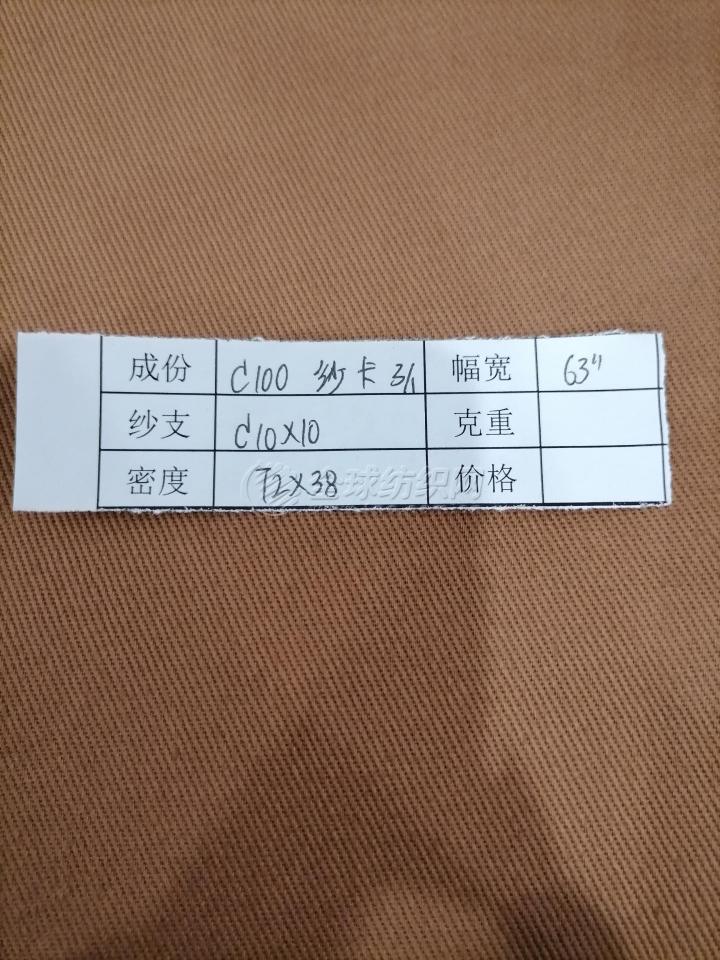 成份 C100 纱卡 3/1 幅宽 63"
纱支 C10X10 克重
密度 72X38 价格
全球纺织网